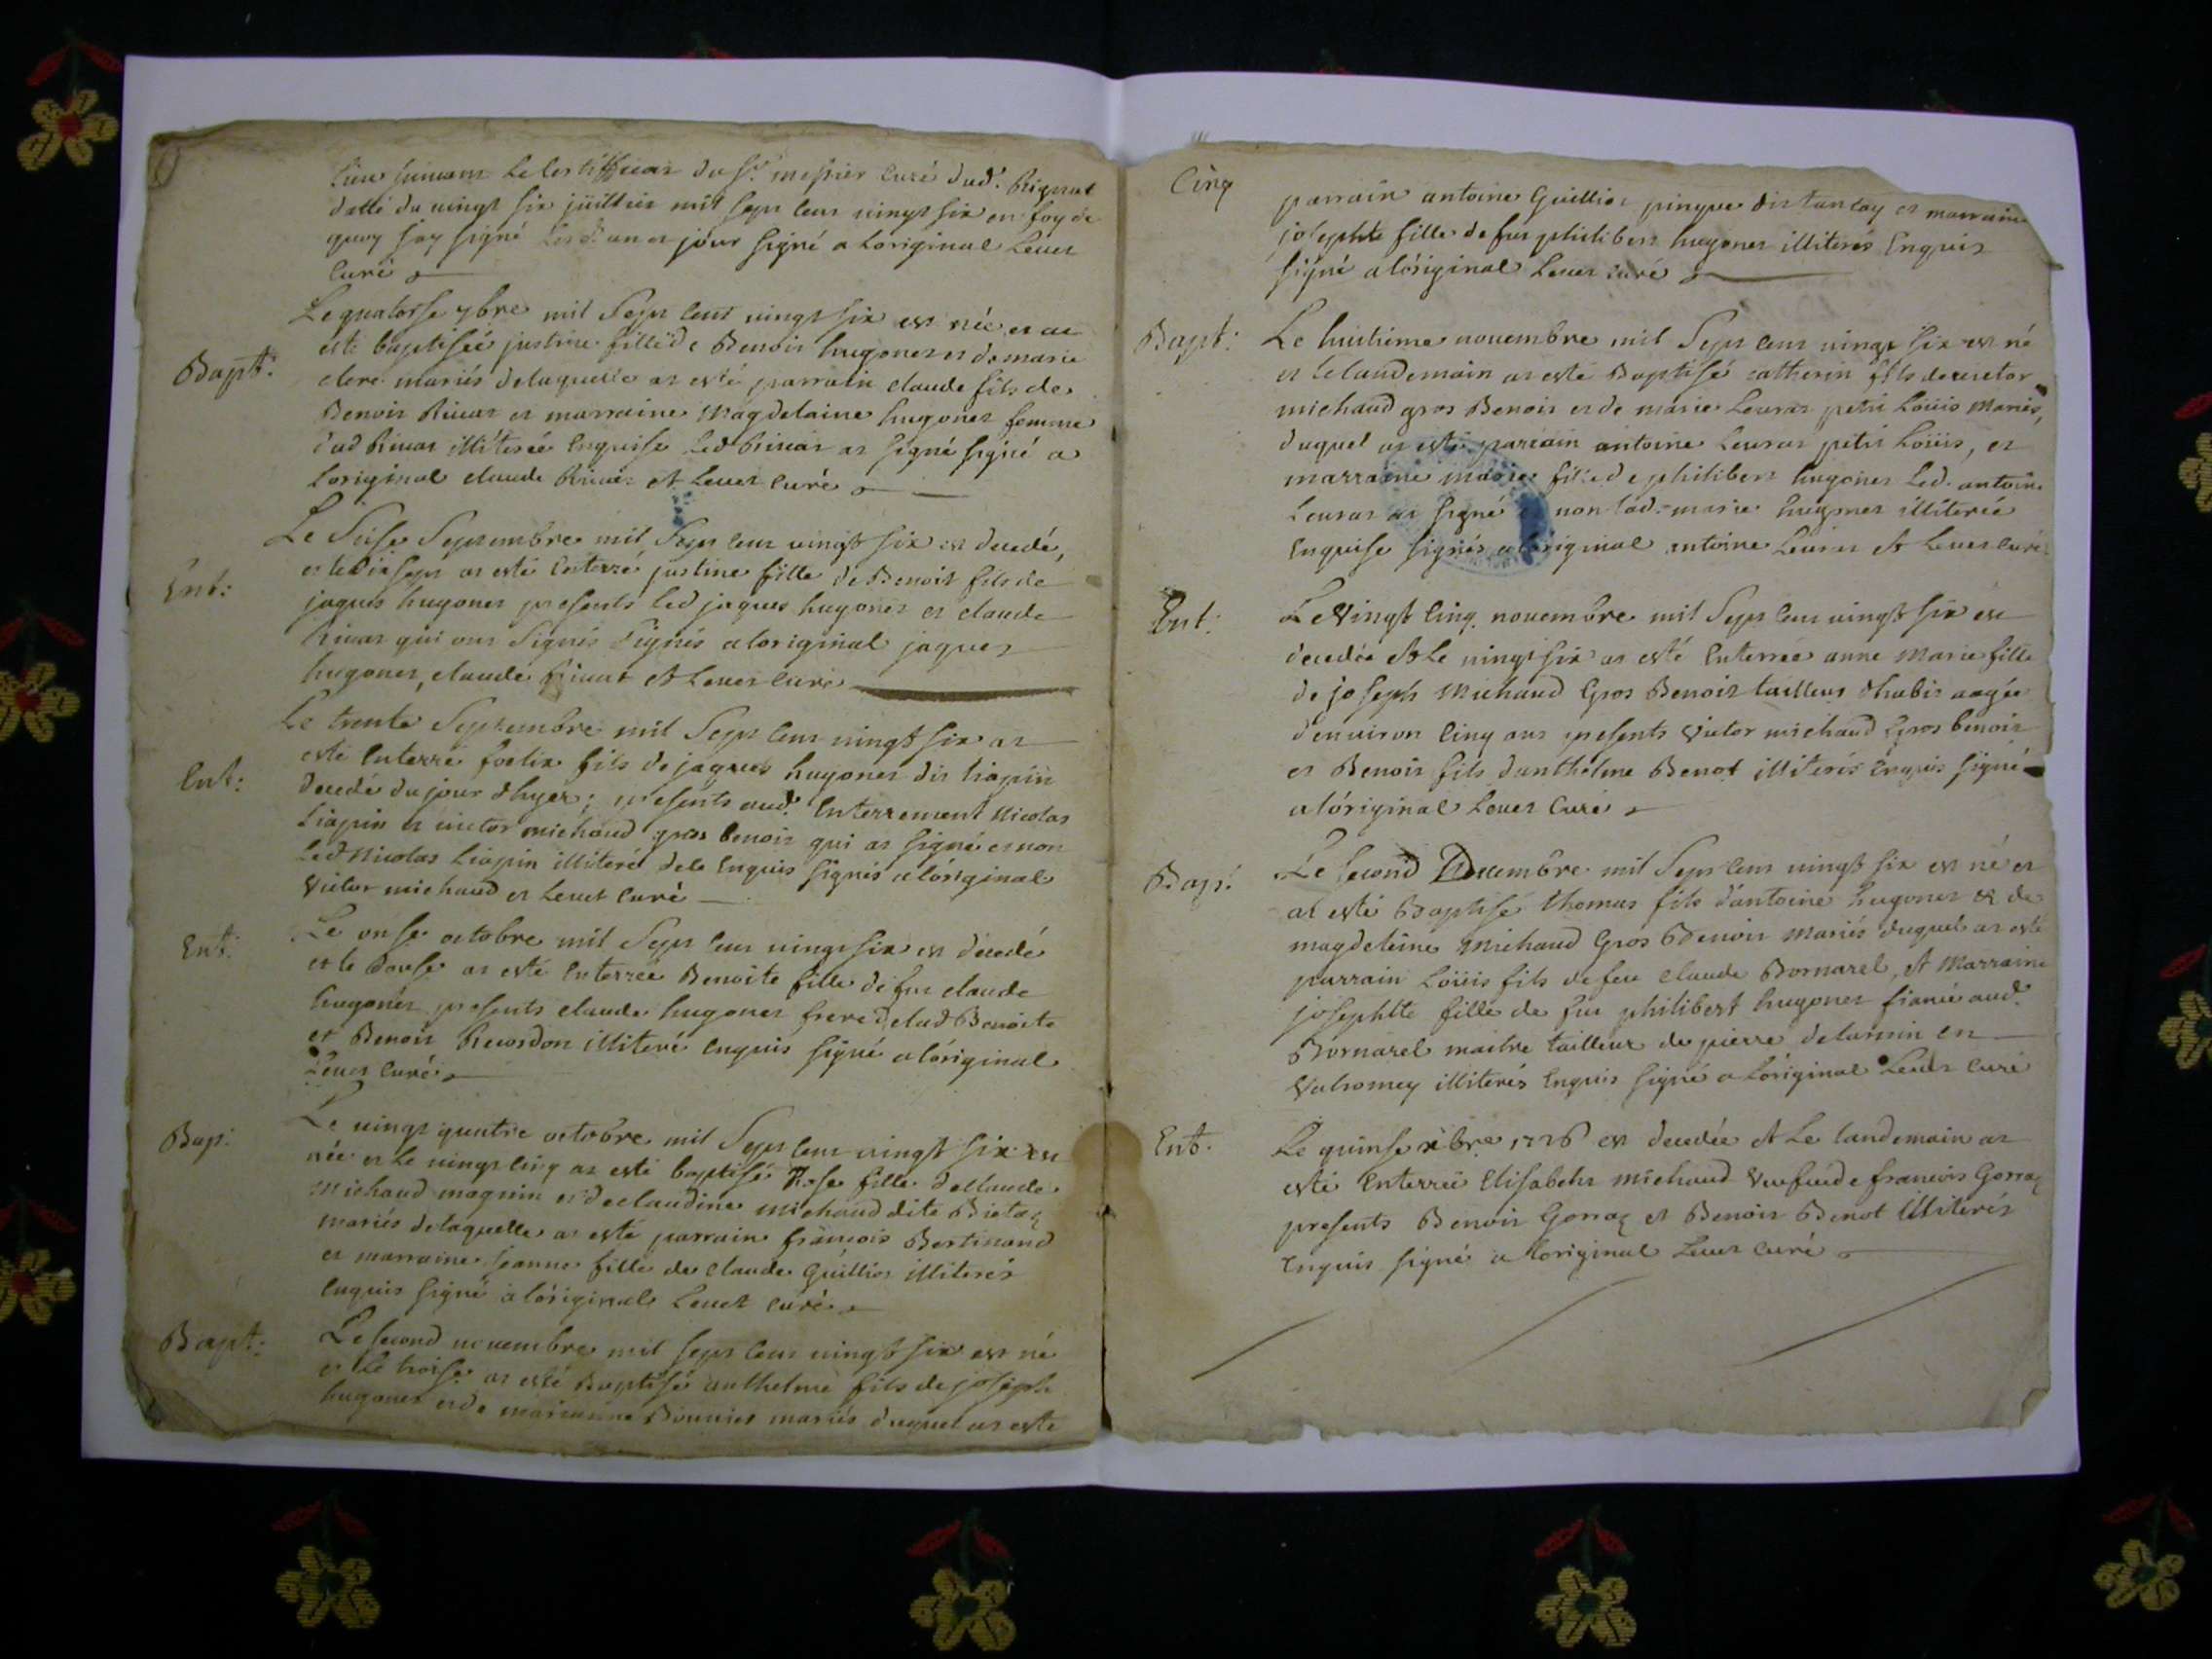 Lieu suivant le Certifficat du Sr. messier Curé dud. Rignat
datté du vingt six juillier mil sept cent vingt six en foy de
quoy j'ay signé les d. an et jour signé a Loriginal Levet
Curé
Bapt: Le quatorse 7bre mil Sept Cent vingt six est née et at
esté baptisée justine fille de Benoit hugonet et de marie
clere mariés delaquelle at esté parrain claude fils de
Benoit Rivat et marraine Magdelaine hugonet femme
dud Rivat illiterée Enquise Led Rivat at signé signé a
Loriginal claude Rivat et Levet Curé
Ent: Le Seise Septembre mil Sept Cent vingt six est decedé,
et le dix sept at esté Enterré justine fille de Benoit fils de
jaques hugonet presents led jaques hugonet et claude
Rivat qui ont Signés Signés a loriginal jaques
hugonet, claude Rivat et Levet Curé
Ent: Le trente Septembre mil Sept Cent vingt six at
esté Enterré foelix fils de jaques hugonet dit liapin
decedé du jour dhyer; presents aud. Enterrement Nicolas
Liapin et victor michaud gros benoit qui at signé et non
led Nicolas Liapin illiteré de ce Enquis signés a lóriginal
Victor michaud et Levet Curé
Ent: Le onse octobre mil Sept Cent vingt six est decedé
et le douse at esté Enterrée Benoite fille de feu claude
hugonet presents claude hugonet frere delad Benoite
et Benoit Reverdon illiteré Enquis signé a lóriginal
Levet Curé
Bap: Le vingt quatre octobre mil Sept Cent vingt six est
née et le vingt cinq at esté baptisé Rose fille de Claude
Michaud magnin et de claudine Michaud dite Bietaz
mariés delaquelle at esté parrain françois Bertinand
et marraine jeanne fille de Claude Guillot illiterés
Enquis signé a lóriginal Levet Curé
Bapt: Le second novembre mil sept Cent vingt six est né
et le troise at esté Baptisé anthelme fils de joseph
hugonet et de marianne mariés duquel at esté
Cinq
parrain antoine Guilliot dit tantay et marraine
josephte fille de feu philibert hugonet illiterés Enquis
signé a lóriginal Levet curé
Bapt: Le huitieme novembre mil Sept Cent vingt six est né
et le landemain at esté Baptisé catherin fils de victor
michaud gros Benoit et de marie Leurat petit Loüis Mariés,
duquel at esté parrain antoine Leurat petit Loüis, et
marraine marie fille de philibert hugonet Led. antoine
Leurat at signé et non lad. marie hugonet illiterée
Enquise signés a loriginal antoine Leurat et Levet Curé
Ent: Le Vingt Cinq novembre mil Sept Cent vingt six est
decedée et Le vingt six at esté Enterrée anne Marie fille
de joseph Michaud Gros Benoit tailleur dhabit aagée
d'environ Cinq ans presents Victor michaud Gros benoit
et Benoit fils danthelme Benot illiterés Enquis signé
a lóriginal Levet Curé
Bap: Le second Decembre mil Sept Cent vingt six est né et
at esté Baptisé thomas fils d'antoine hugonet et de
magdeleine Michaud Gros Benoit mariés duquel at esté
parrain Loüis fils de feu Claude Bornarel, et Marraine
josephtte fille de feu philibert hugonet fiancée aud.
Bornarel maitre tailleur de pierre en
Valromey illiterés Enquis signé a Lóriginal Levet Curé
Ent. Le quinse xbre 1726 est decedée et Le landemain at
esté Enterrée Elisabeht Michaud Veufve de francois Gorraz
presents Benoit Gorraz et Benoit Benot illiterés
Enquis signé a loriginal Levet Curé